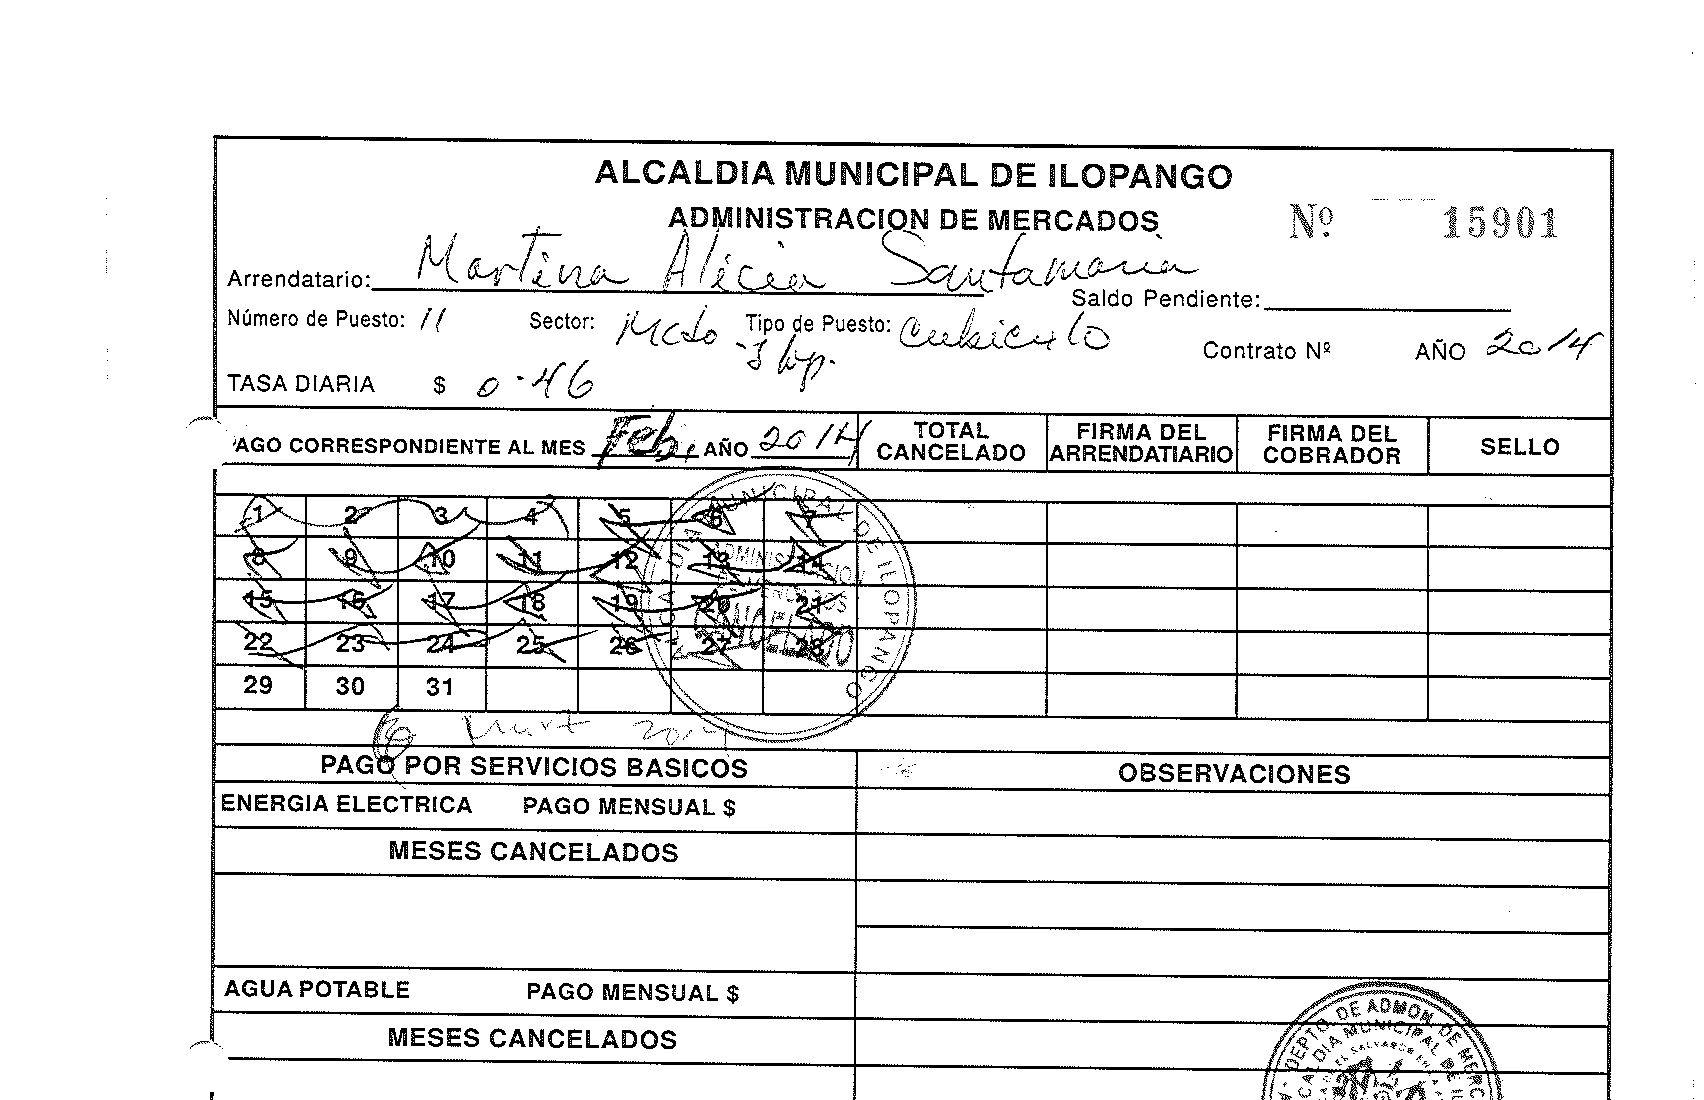 ALCALDIA MUNICIPAL DE ILOPANGO
ADMINISTRACION DE MERCADOS
Nº 15901
Arrendatario: Martina Alicia Santamaria
Saldo Pendiente:
Número de Puesto: 11 Sector: Mcdo Tipo de Puesto: Cubiculo
Contrato Nº AÑO 2014
TASA DIARIA $ 0.46
PAGO CORRESPONDIENTE AL MES Feb. AÑO 2014
TOTAL CANCELADO
FIRMA DEL ARRENDATIARIO
FIRMA DEL COBRADOR
SELLO
1 2 3 4 5 6 7
8 9 10 11 12 13 14
15 16 17 18 19 20 21
22 23 24 25 26 27 28
29 30 31
ALCALDIA MUNICIPAL DE ILOPANGO
ADMINISTRACION
CANCELADO
2014
PAGO POR SERVICIOS BASICOS
OBSERVACIONES
ENERGIA ELECTRICA PAGO MENSUAL $
MESES CANCELADOS
AGUA POTABLE PAGO MENSUAL $
MESES CANCELADOS
DEPTO. DE ADMON. DE MERC
ALCALDIA MUNICIPAL DE